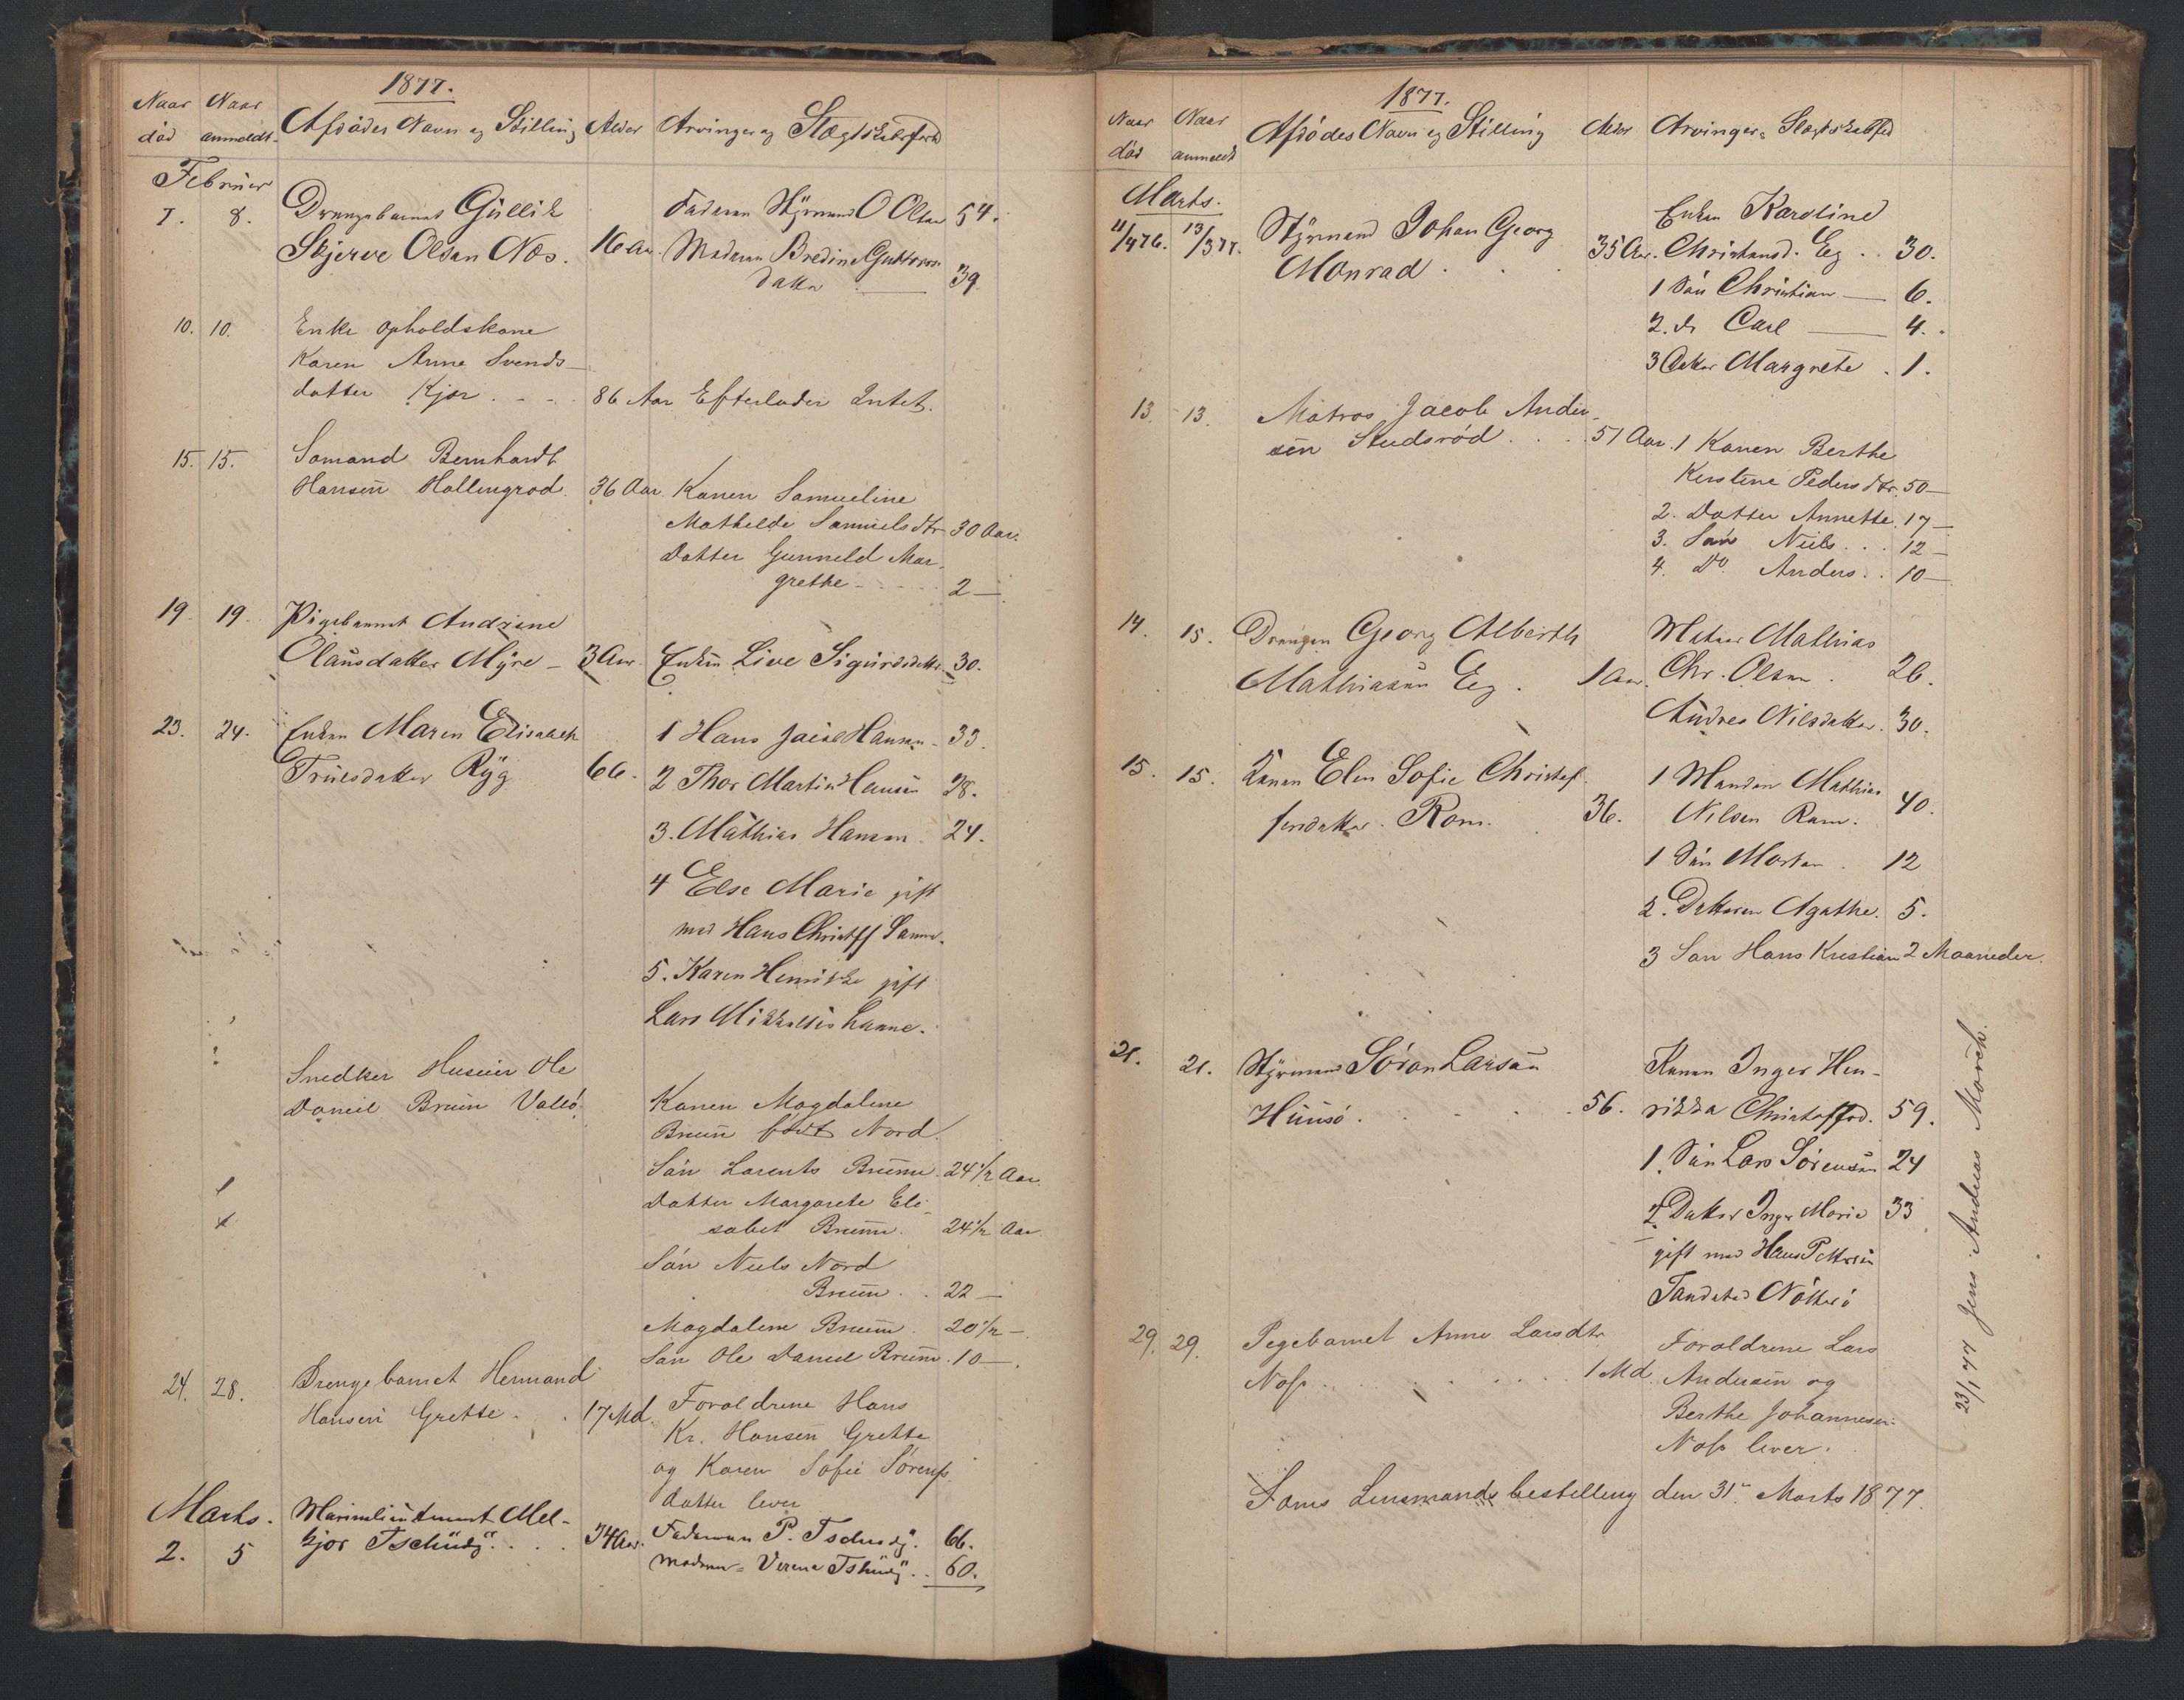 1877.
Naar død Naar anmeldt. Afdødes Navn og Stilling Alder Arvinger og Slægtskabsforh
Februar
7. 8. Drengebarnet Gullik Faderen Styrmand O Olsen 54.
Skjerve Olsen Næs. 16 Aar. Moderen Bredine Guttorms
datter 39
10. 10. Enke opholdskone
Karen Anne Svends-
datter Kjær . . . 86 Aar Efterlader Intet.
15. 15. Sømand Bernhardt
Hansen Hollengrød. 36 Aar. Konen Samueline
Mathilde Samuelsdtr 30 Aar.
Datter Gunneld Mar-
grethe 2 —
19. 19. Pigebarnet Andrine
Olausdatter Myre — 3 Aar. Enken Live Sigurdsdatter. 30.
23. 24. Enken Maren Elisabeth 1 Hans Jacob Hansen - 33.
Truelsdatter Ryg. 66. 2 Thor Martin Hansen 28.
3. Mathias Hansen. 24.
4 Else Marie gift
med Hans Christoff Sanne.
5. Karen Henrikke gift
Lars Mikkelsen Sanne.
Snedker Huseier Ole
Daniel Bruun Vallø. Konen Magdalene
Bruun født Nord.
Søn Lorents Bruun. 24 1/2 Aar.
Datter Margarete Eli-
sabet Bruun. 24 1/2 Aar.
Søn Niels Nord
Bruun . . 22 —
Magdalene Bruun. 20 1/2 —
Søn Ole Daniel Bruun. 10 —.
24. 28. Drengebarnet Hermand
Hansen Grette . . 17 Md. Forældrene Hans
Kr. Hansen Grette
og Karen Sofie Sørens
datter lever
Marts. Marinelieutenant Mel-
2. 5 kjor Tschudy. . . . 34 Aar. Faderen P. Tschudy. 66.
Moderen = Verena Tshudy. . 60.
1877.
Naar død Naar anmeldt Afdødes Navn og Stilling Alder Arvinger & Slægtskabsfod
Marts. Enken Karoline
11/4 76. 13/3 77. Styrmand Johan Georg
Monrad . . . 35 Aar. Christensd. Eg . . 30.
1 Søn Christian — 6.
2. do Carl — 4.
3 Datter Margrete . 1.
13. 13. Matros Jacob Ander-
sen Studsrød . . . 51 Aar. 1 Konen Berthe
Kerstine Pedersdtr. 50 —
2. Datter Annette. 17 —
3. Søn Niels . . . 12 —
4. Do. Anders . . 10 —
14. 15. Drengen Georg Alberth Matros Mathias
Mathiasen Eg . 1 Aar. Chr. Olsen . 26.
Andrea Nilsdatter. 30.
15. 15. Konen Elen Sofie Christof- 1 Manden Mathias
fersdatter. Rom. 36. Nilsen Ram. 40.
1 Søn Morten . 12
2. Datteren Agathe. 5.
3 Søn Hans Kristian 2 Maaneder.
21. 21. Styrmand Søren Larsen Konen Inger Hen-
Huusø . . . . 56. rikka Christoffd. 59.
1. Søn Lars Sørensen 24
2. Datter Inger Marie 33
gift med Hans Pettersen
Tandstad Nøtterø
29. 29. Pegebarnet Anne Larsdtr. Forældrene Lars
Nøss . . . . 1 Md. Andersen og
Berthe Johannesen.
Nøss lever.
Sems Lensmandsbestelling den 31te Marts 1877.
23/1 77 Jens Andreas Mørch.